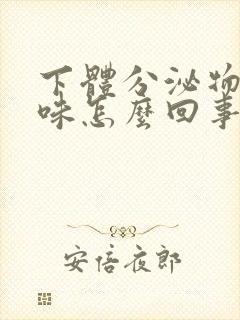 下體分泌物
味怎麼回事
安倍夜郎